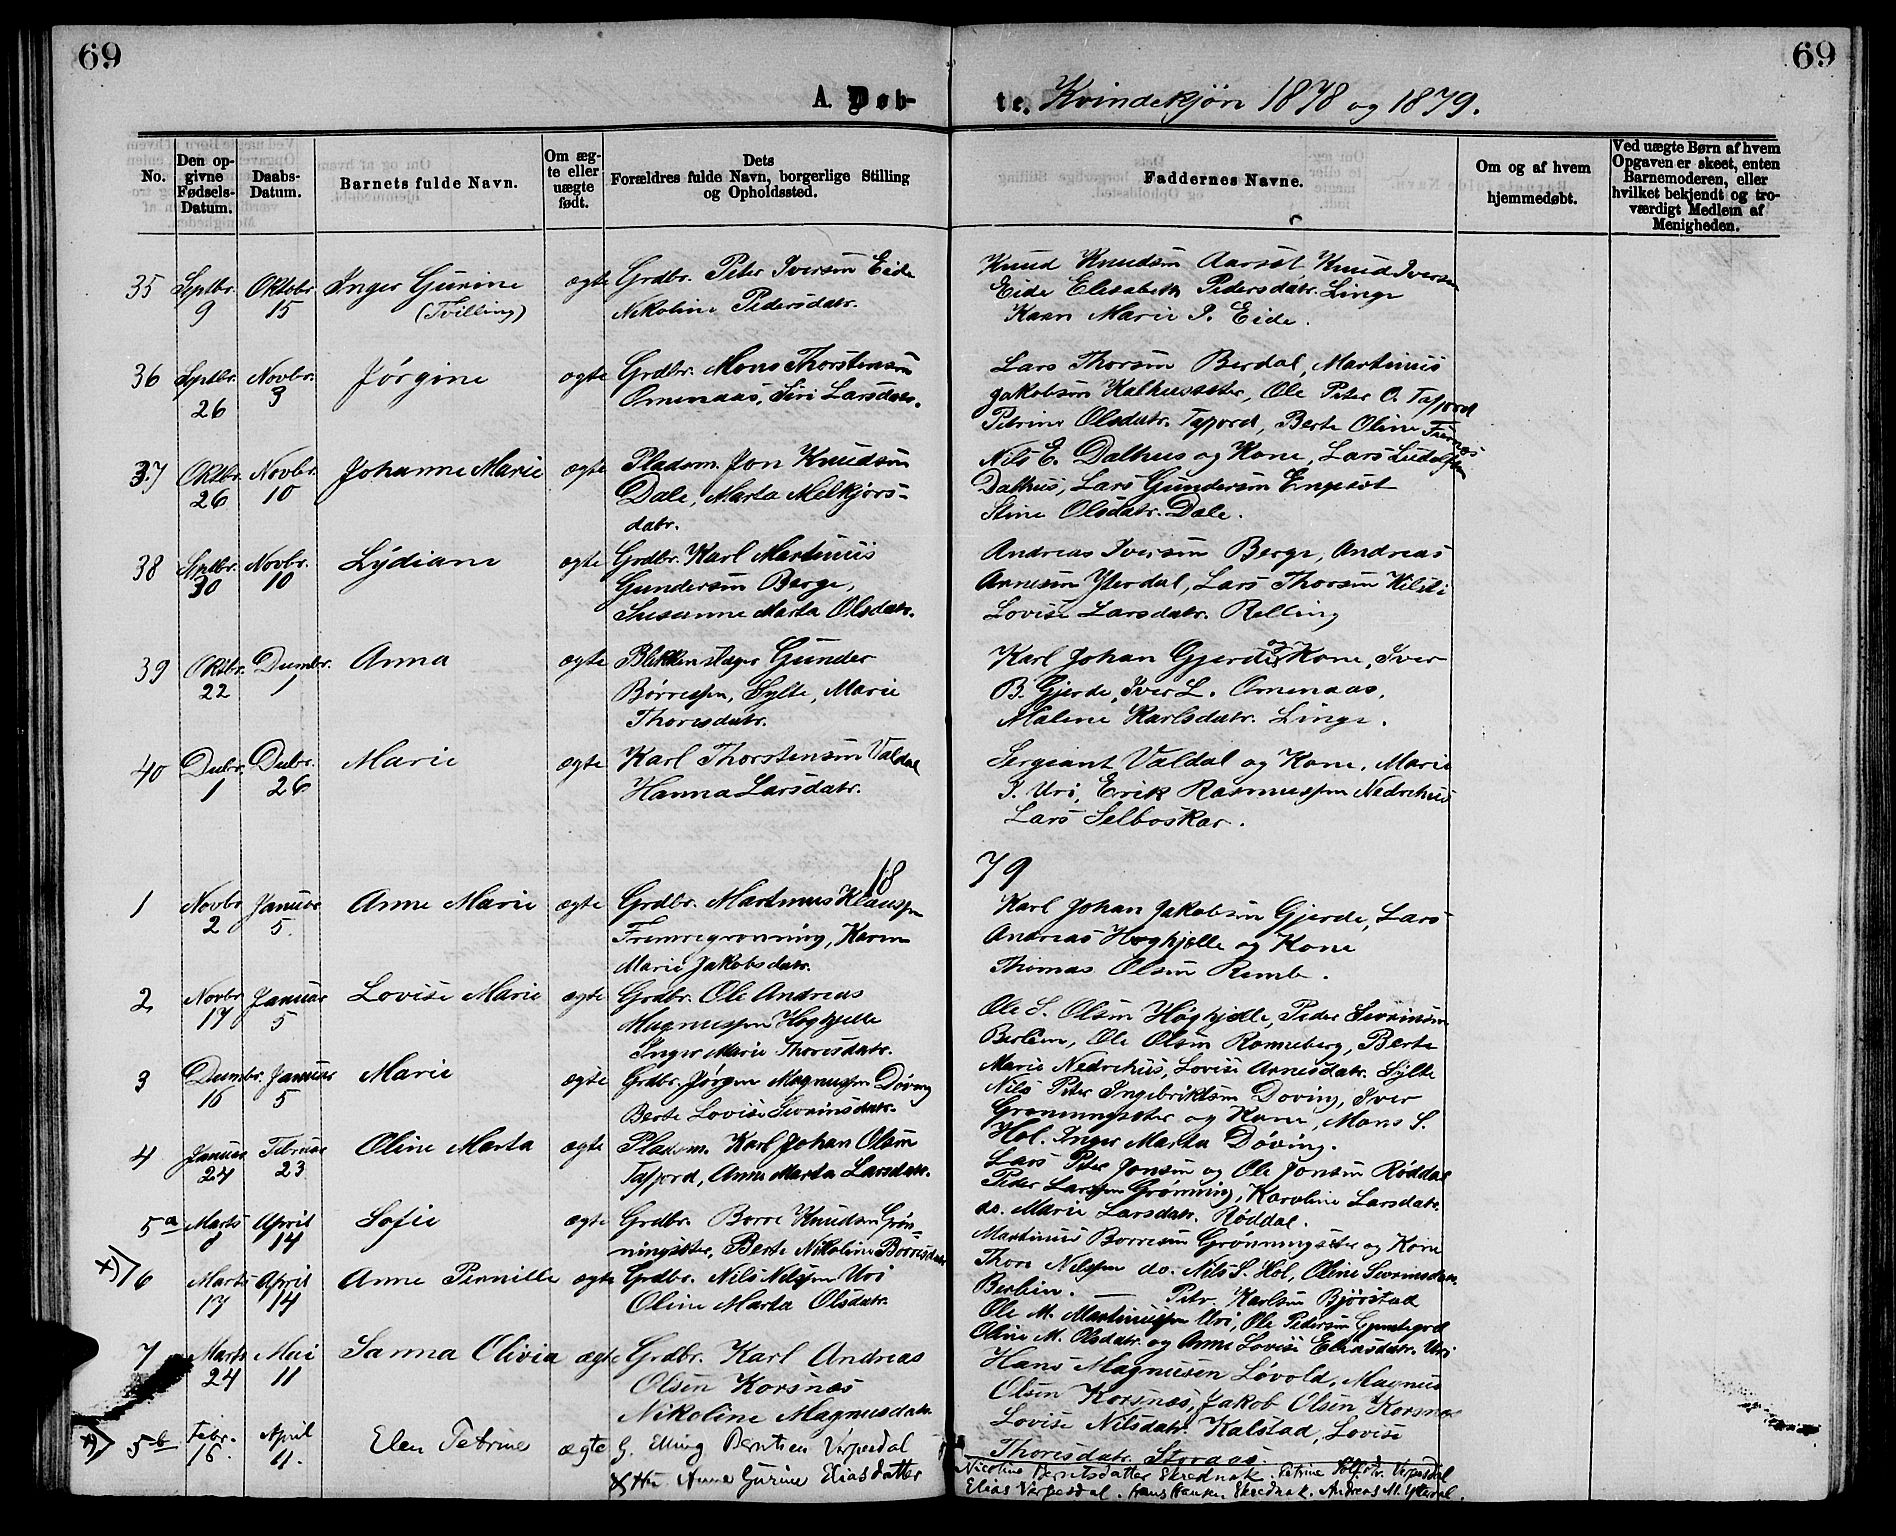 69
69
A. Døb-
te. Kvindekjön 1878 og 1879.
No.
Den op-
givne
Fødsels-
Datum.
Daabs-
Datum.
Barnets fulde Navn.
Om æg-
te eller
uægte
født.
Dets
Forældres fulde Navn, borgerlige Stilling
og Opholdssted.
Faddernes Navne.
Om og af hvem
hjemmedøbt.
Ved uægte Børn af hvem
Opgaven er skeet, enten
Barnemoderen, eller
hvilket bekjendt og tro-
værdigt Medlem af
Menigheden.
35 Septbr. 9 Oktobr. 15 Inger Gurine (Tvilling) ægte Grdbr. Peter Iversen Eide
Nikoline Pedersdatr.
Knud Knudsen Aarset, Knud Iversen
Eide Elisabeth Pedersdatr. Linge
Karn Marie P. Eide.
36 Septbr. 26 Novbr. 3 Jörgine ægte Grdbr. Mons Thorstensen
Omenaas, Siri Larsdatr.
Lars Thorsen Berdal, Martinus
Jakobsen Kalhussæter, Ole Peter O. Tafjord
Petrine Olsdatr. Tafjord, Berte Oline
37 Oktbr. 26 Novbr. 10 Johanne Marie ægte Pladsm. Jon Knudsen
Dale, Marta Melkjors-
datr.
Nils E. Dalhus og Kone, Lars Ludolfsen
Dalhus, Lars Gundersen Engeset
Stine Olsdatr. Dale.
38 Septbr. 30 Novbr. 10 Lydiane ægte Grdbr. Karl Martinus
Gundersen Berge,
Susanne Marta Olsdatr.
Andreas Iversen Berge, Andreas
Arnesen Yterdal, Lars Thorsen Kilsti
Lovise Larsdatr. Relling
39 Oktbr. 22 Decmbr. 1 Anna ægte Blikkenslager Gunder
Börresen, Sylte, Marie
Thoresdatr.
Karl Johan Gjerde og Kone, Iver
B. Gjerde, Iver L. Omenaas,
Malene Karlsdatr. Linge.
40 Decbr. 1 Decbr. 26 Marie ægte Karl Thorstensen Valdal
Hanna Larsdatr.
Sergeant Valdal og Kone, Marie
I. Uri, Erik Rasmussen Nedrehus
Lars Selboskar.
18 79
1 Novbr 2 Januar 5. Anne Marie ægte Grdbr. Martinus Klausen
Fremregrønning, Karen
Marie Jakobsdatr.
Karl Johan Jakobsen Gjerde, Lars
Andreas Høghjelle og Kone
Thomas Olsen Remb.
2 Novbr 17 Januar 5 Lovise Marie ægte Grdbr. Ole Andreas
Magnussen Høghjelle
Inger Marie Thoresdatr.
Ole S. Olsen Høghjelle, Peder Severinsen
Berlien, Ole Olsen Ronneberg, Berte
Marie Nedrehus, Lovise Arnesdatr. Sylte
3 Decmbr. 16 Januar 5 Marie ægte Grdbr. Jörgen Magnussen Döving
Berte Lovise Severinsdatr.
Nils Peter Ingebriktsen Döving, Iver
Grønningsæter og Kone, Mons S.
Hol. Inger Marta Döving.
4 Januar 24 Februar 23 Oline Marta ægte Pladsm. Karl Johan Olsen
Tafjord, Anne Marta Larsdatr.
Lars Peter Jonsen og Ole Jonsen Röddal
Peder Larsen Grönning, Karoline Larsdatr.
do. Marie Larsdatr. Röddal.
5a Marts 8 April 14 Sofie ægte Grdbr. Borre Knudsen Grön-
ningsæter, Berte Nikoline Borresdatr
Martinus Borresen Grönningsæter og Kone
Thore Nilssen do. Nils S. Hol, Oline Severinsdatr.
Berlien.
x) 6 Marts 17 April 14 Anne Pernille ægte Grdbr. Nils Nilssen Uri
Oline Marta Olsdatr.
— Petr. Karlsen Bjørstad
Ole M. Martinussen Uri, Ole Pedersen
Oline M. Olsdatr. og Anne Lovise Eliasdatr. Uri
7 Marts 24 Mai 11 Sanna Olivia ægte Grdbr. Karl Andreas
Olsen Korsnæs
Nikoline Magnusdatr.
Hans Magnusen Løvold, Magnus
Olsen Korsnæs, Jakob Olsen Korsnæs
Lovise Nilsdatr. Kalstad, Lovise
Thoresdatr. Storaas.
x) 5b Febr. 16. April 11. Elen Petrine ægte G. Elling Berntsen Verpesdal
& Hu. Anne Gurine Eliasdatter
Nicoline Berntsdatter Skrednak. Petrine Verpesdal
Elias Verpesdal. Skrednak. Andreas M. Yterdal.